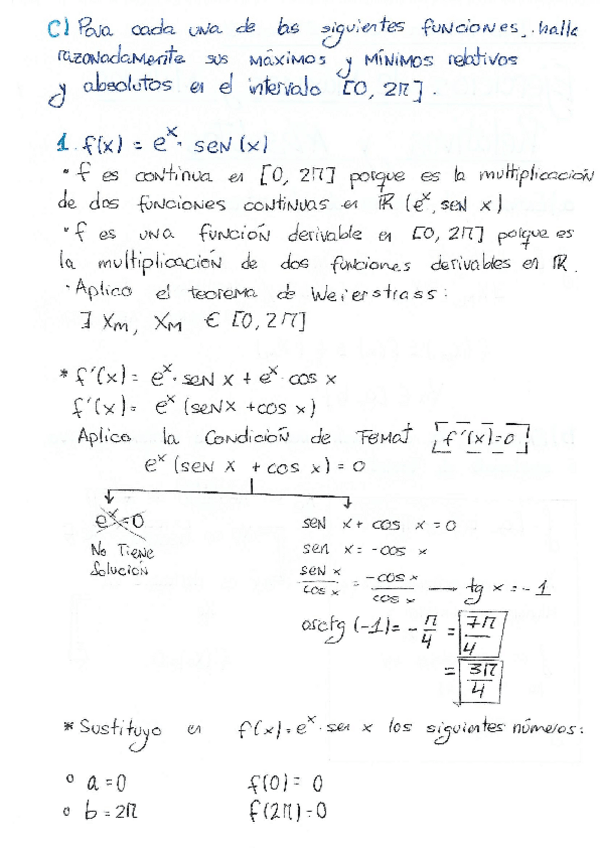 C) Para cada una de las siguientes funciones, halla
razonadamente sus máximos y mínimos relativos
y absolutos en el intervalo [0, 2π].
1. f(x) = eˣ · sen (x)
· f es continua en [0, 2π] porque es la multiplicación
de dos funciones continuas en ℝ (eˣ, sen x)
· f es una función derivable en [0, 2π] porque es
la multiplicación de dos funciones derivables en ℝ.
· Aplico el teorema de Weierstrass:
∃ Xm, XM ∈ [0, 2π]
* f'(x) = eˣ · sen x + eˣ · cos x
f'(x) = eˣ (sen x + cos x)
Aplico la condición de Fermat f'(x)=0
eˣ (sen x + cos x) = 0
eˣ=0
No Tiene
Solución
sen x + cos x = 0
sen x = -cos x
sen x / cos x = -cos x / cos x → tg x = -1
arctg (-1) = - π/4 = 7π/4
= 3π/4
* Sustituyo en f(x) = eˣ · sen x los siguientes números:
° a = 0 f(0) = 0
° b = 2π f(2π) = 0